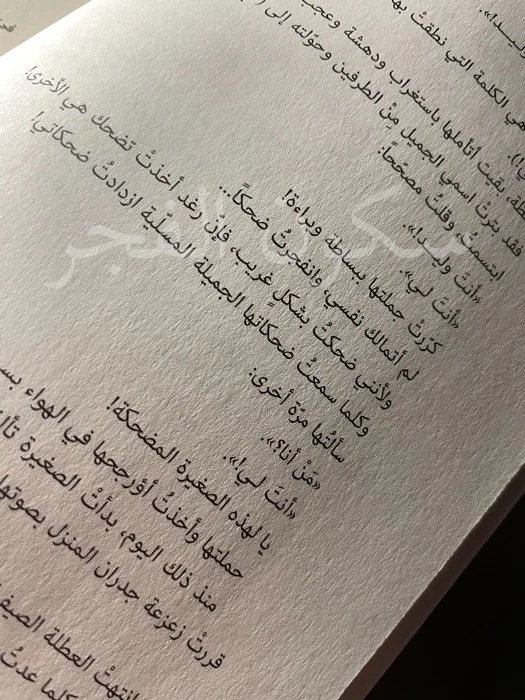 وليـدا!».
هي الكلمة التي نطقتْ بها
بقيت أتأملها باستغراب ودهشة وعجب
فقد بترتْ اسمي الجميل مِنْ الطرفين وحوّلته إلى
ابتسمتُ وقلتُ مصحّحاً:
«أنتَ وليـدا!».
«أنتَ لـي».
كرّرتْ جملتها ببساطة وبراءة!
لم أتمالك نفسي، وانفجرتُ ضحكاً...
ولأنني ضحكتُ بشكل غريب، فإنّ رغد أخذتْ تضحك هي الأخرى!
وكلما سمعتُ ضحكاتها الجميلة المسلّية ازدادتُ ضحكاتي!
سألتُها مرّة أخرى:
«مَنْ أنا؟».
«أنتَ لـي!».
يا لهذه الصغيرة المضحكة!
حملتها وأخذتُ أؤرجحها في الهواء
منذ ذلك اليوم، بدأتْ الصغيرة
قررتْ زعزعة جدران المنزل بصوتها
انتهتْ العطلة
كلما عدتُ
سكرة الفجر